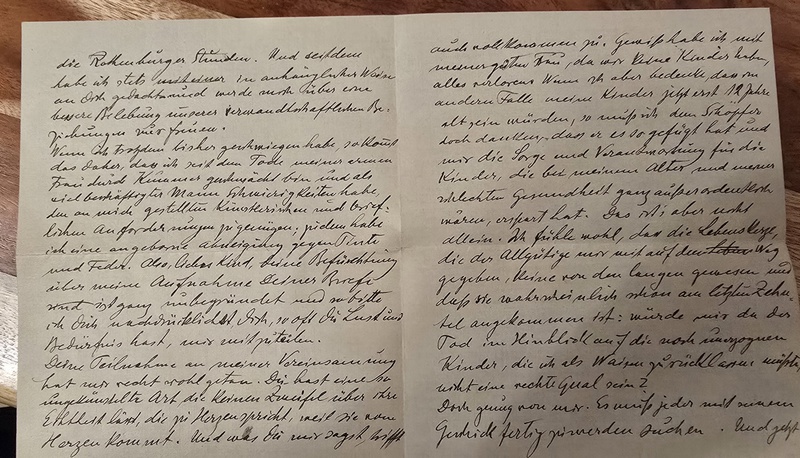 die Rothenburger Stunden. Und seitdem
habe ich stets mit einer in anhänglicher Weise
an Dich gedacht und werde mich über eine
bessere Belebung unserer verwandtschaftlichen Be-
ziehungen nur freuen.
Wenn ich trotzdem bisher geschwiegen habe, so kommt
das daher, daß ich seit dem Tode meiner armen
Frau durch Kummer geschwächt bin und als
viel beschäftigter Mann Schwierigkeiten habe,
den an mich gestellten künstlerischen und brief-
lichen Anforderungen zu genügen, zudem habe
ich eine angeborne Abneigung gegen Tinte
und Feder. Also, liebes Kind, Deine Befürchtung
über meine Aufnahme Deiner Briefe
sind ist ganz unbegründet und so bitte
ich Dich nachdrücklichst, Dich, so oft Du Lust und
Bedürfnis hast, mir mitzuteilen.
Deine Teilnahme an meiner Vereinsamung
hat mir recht wohl getan. Du hast eine so
ungekünstelte Art die keinen Zweifel über ihre
Echtheit lässt, die zu Herzen spricht, weil sie vom
Herzen kommt. Und was Du mir sagst, trifft
auch vollkommen zu. Gewiß habe ich mit
meiner guten Frau, da wir keine Kinder haben,
alles verloren. Wenn ich aber bedenke, daß im
andern Falle meine Kinder jetzt erst Jahre
alt sein würden, so muß ich dem Schöpfer
doch danken, dass er es so gefügt hat und
mir die Sorge und Verantwortung für die
Kinder, die bei meinem Alter und meiner
schlechten Gesundheit ganz außerordentlich
wären, erspart hat. Das ists aber nicht
allein. Ich fühle wohl, daß die Lebenskerze,
die der Allgütige mir mit auf den Weg
gegeben, keine von den langen gewesen und
daß sie wahrscheinlich schon am letzten Zehn-
tel angekommen ist: würde mir da der
Tod im Hinblick auf die noch unerzognen
Kinder, die ich als Waisen zurücklassen müßte,
nicht eine rechte Qual sein?
Doch genug von mir. Es muß jeder mit seinem
Geschick fertig zu werden suchen. Und jetzt